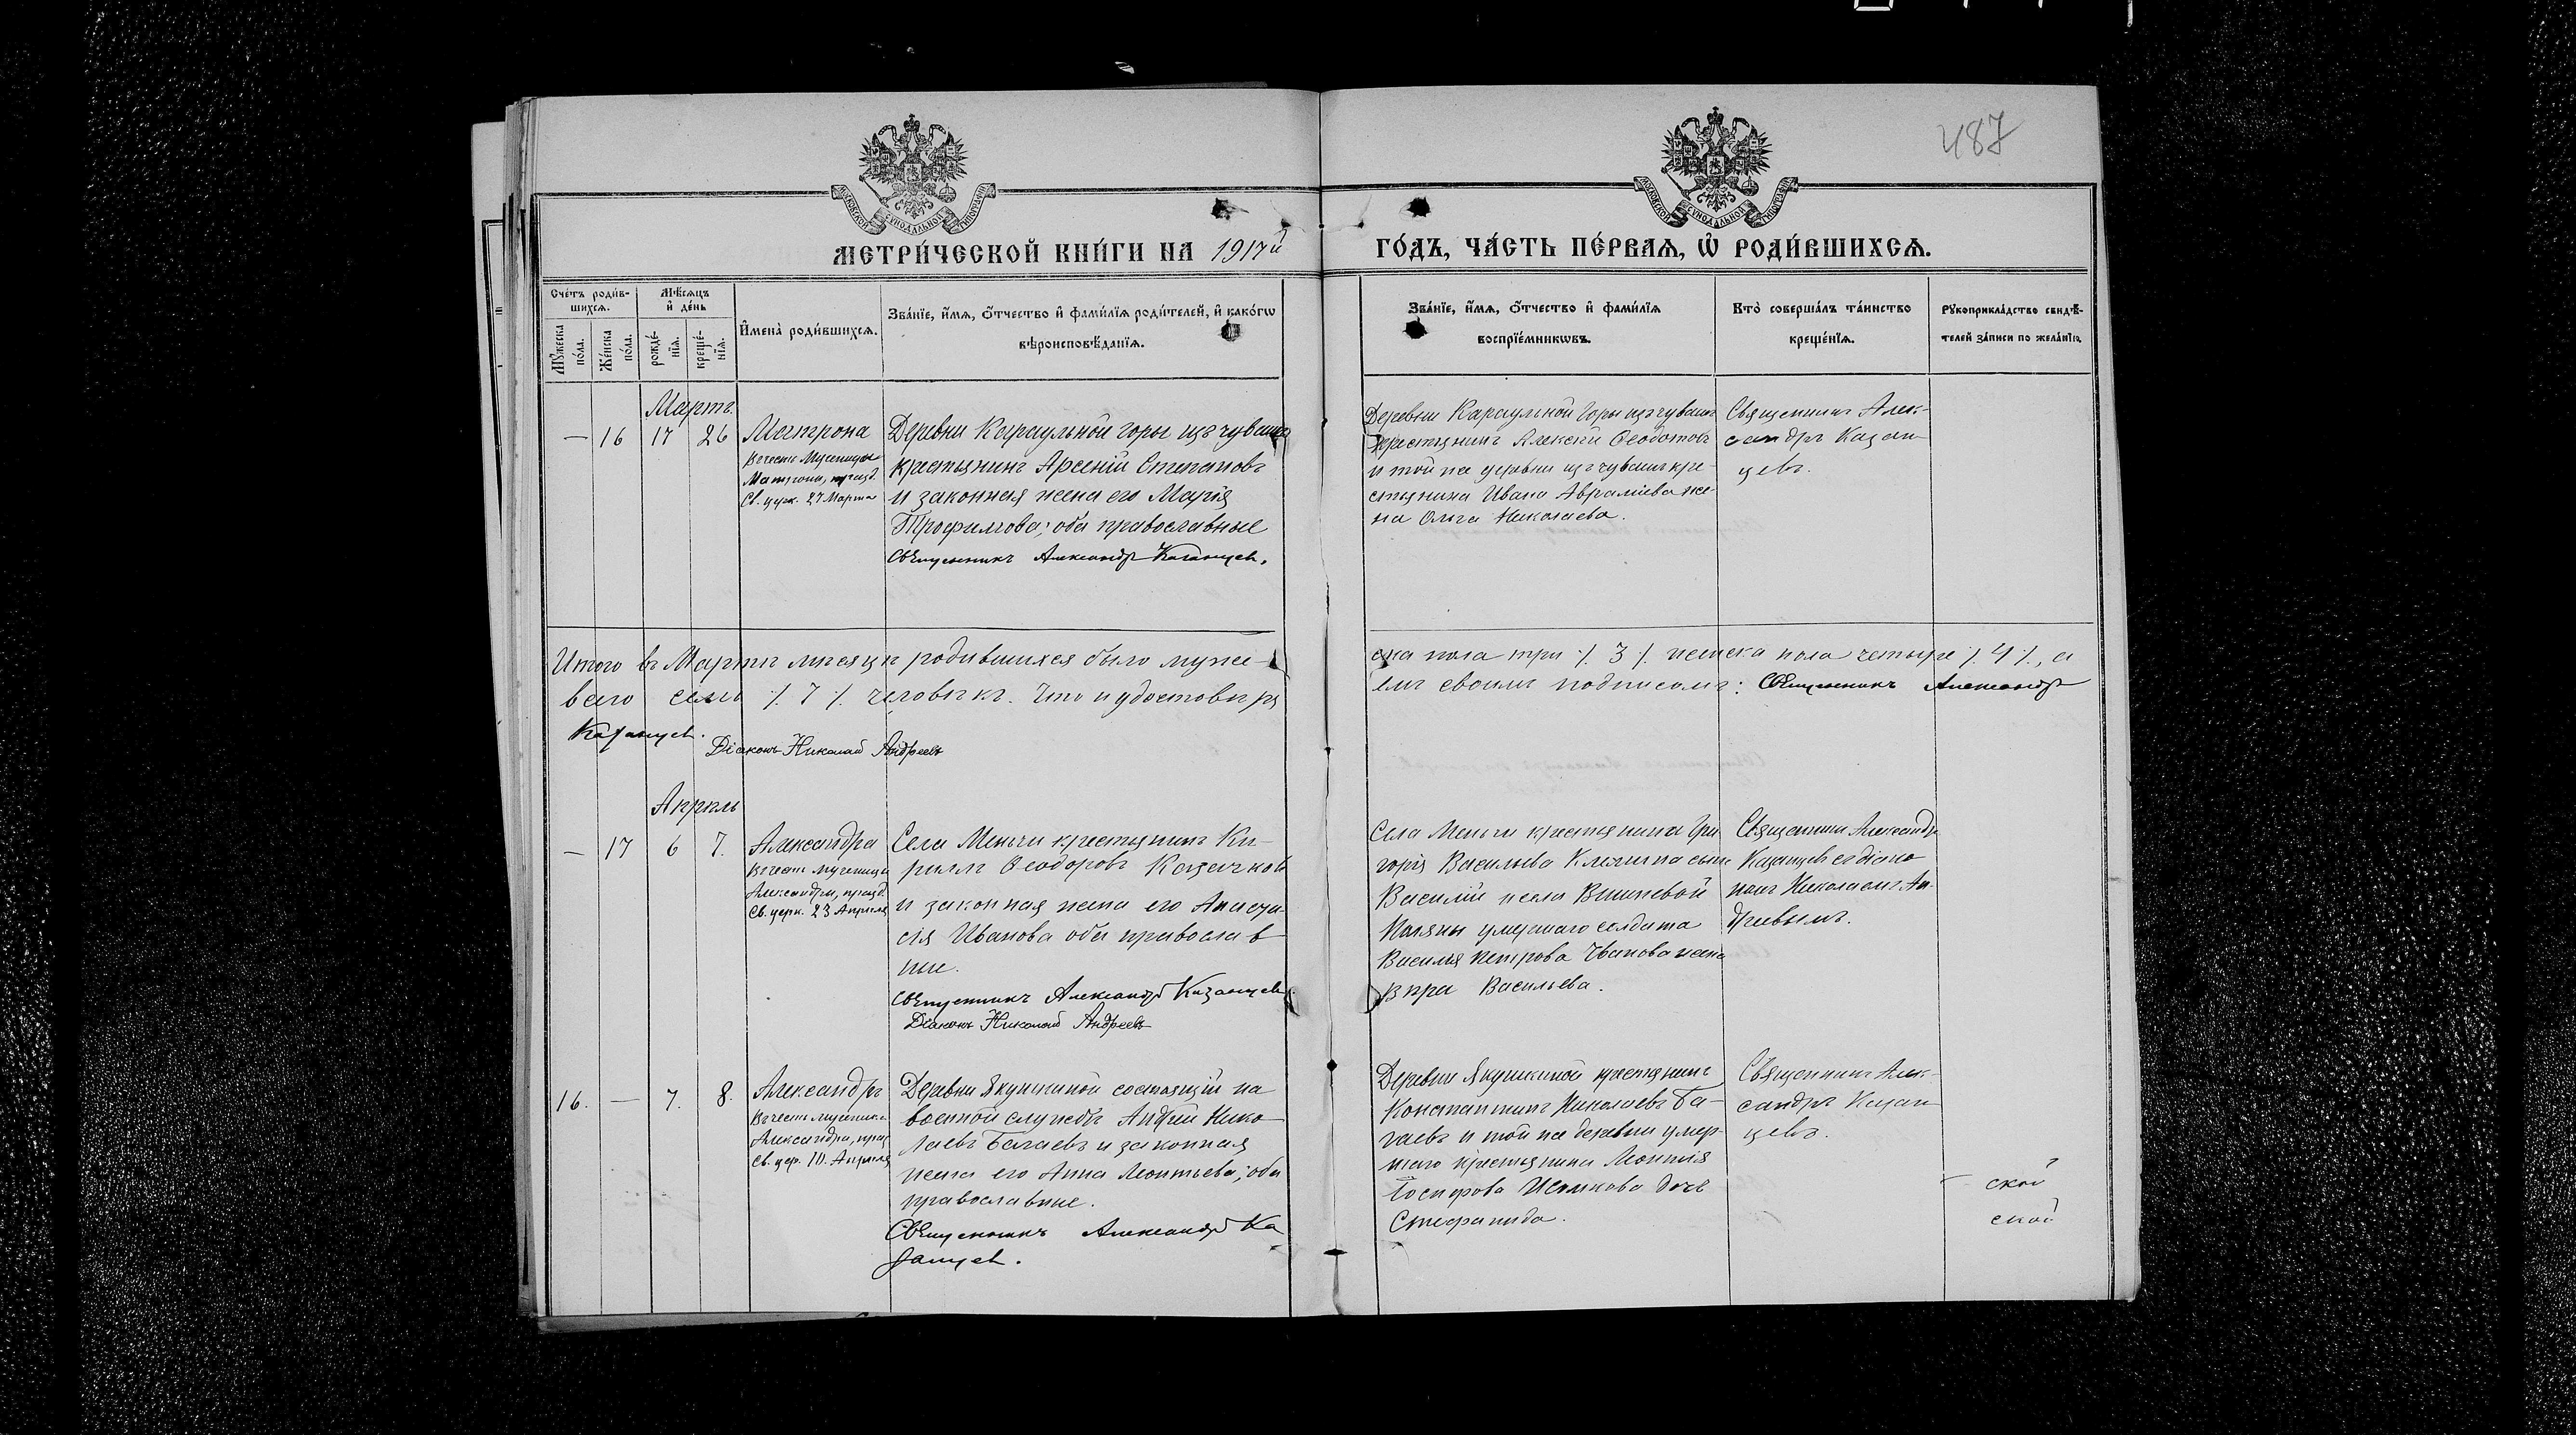 487
МЕТРИ́ЧЕСКОЙ КНИ́ГИ НА 1917й ГО́ДЪ, ЧА́СТЬ ПЕ́РВАѦ, Ѡ҆ РОДИ́ВШИХСѦ.
Сче́тъ роди́в-
шихсѧ.
Мꙋ́жеска по́ла.
Же́нска по́ла.
Мѣ́сѧцъ и҆ де́нь
рожде́-
нїѧ.
креще́-
нїѧ.
И҆мена̀ роди́вшихсѧ.
Зва́нїе, и҆́мѧ, ѻ҆́тчество и҆ фами́лїѧ роди́телей, и҆ како́гѡ
вѣроисповѣ́данїѧ.
Зва́нїе, и҆́мѧ, ѻ҆́тчество и҆ фами́лїѧ
воспрїе́мникѡвъ.
Кто̀ соверша́лъ та́инство
креще́нїѧ.
Рꙋкоприкла́дство свидѣ́-
телей за́писи по жела́нїю.
Мартъ.
— 16 17 26
Матрона
Въ честь Мученицы
Матроны, празд.
Св. церк. 27 Марта
Деревни Караульной горы изъ чувашъ
крестьянинъ Арсеній Степановъ
и законная жена его Марія
Трофимова; оба православные
Священникъ Александръ Казанцев.
Деревни Караульной Горы изъ чувашъ
крестьянинъ Алексій Ѳеодотовъ
и той же деревни изъ чувашъ кре-
стьянина Ивана Авраміева же-
на Ольга Николаева.
Священникъ Алек-
сандръ Казан-
цевъ.
Итого въ Мартѣ мѣсяцѣ родившихся было муже-
ска пола три /. 3 /. женска пола четыре /. 4 /., а
всего семь /. 7 /. человѣкъ. Что и удостовѣря
емъ своимъ подписомъ: Священникъ Александръ
Казанцев.
Діаконъ Николай Андреевъ
Апрѣль
— 17 6 7.
Александра
Въ честь мученицы
Александры, празд.
Св. церк. 23 Апрѣля
Села Меньчи крестьянинъ Ки-
риллъ Ѳеодоровъ Казачковъ
и законная жена его Анаста-
сія Иванова оба православ-
ные.
Священникъ Александръ Казанцев.
Діаконъ Николай Андреевъ
Села Меньчи крестьянина Гри
горія Васильева сынъ
Василій и села Вишневой
Поляны умершаго солдата
Василья Петрова жена
Вѣра Васильева.
Священникъ Александръ
Казанцевъ съ діако
номъ Николаемъ Ан-
дреевымъ.
16. — 7. 8.
Александръ
Въ честь мученика
Александра, праз
Св. цер. 10. Апрѣля
Деревни Якушкиной состоящій на
военной службѣ Андрей Нико-
лаевъ Багаевъ и законная
жена его Анна Леонтьева; оба
православные.
Священникъ Александръ Ка
занцев.
Деревни Якушкиной крестьянинъ
Константинъ Николаевъ Ба-
гаевъ и той же деревни умер-
шаго крестьянина Леонтія
дочь
Стефанида.
Священникъ Алек-
сандръ Казан-
цевъ.
ской
ской